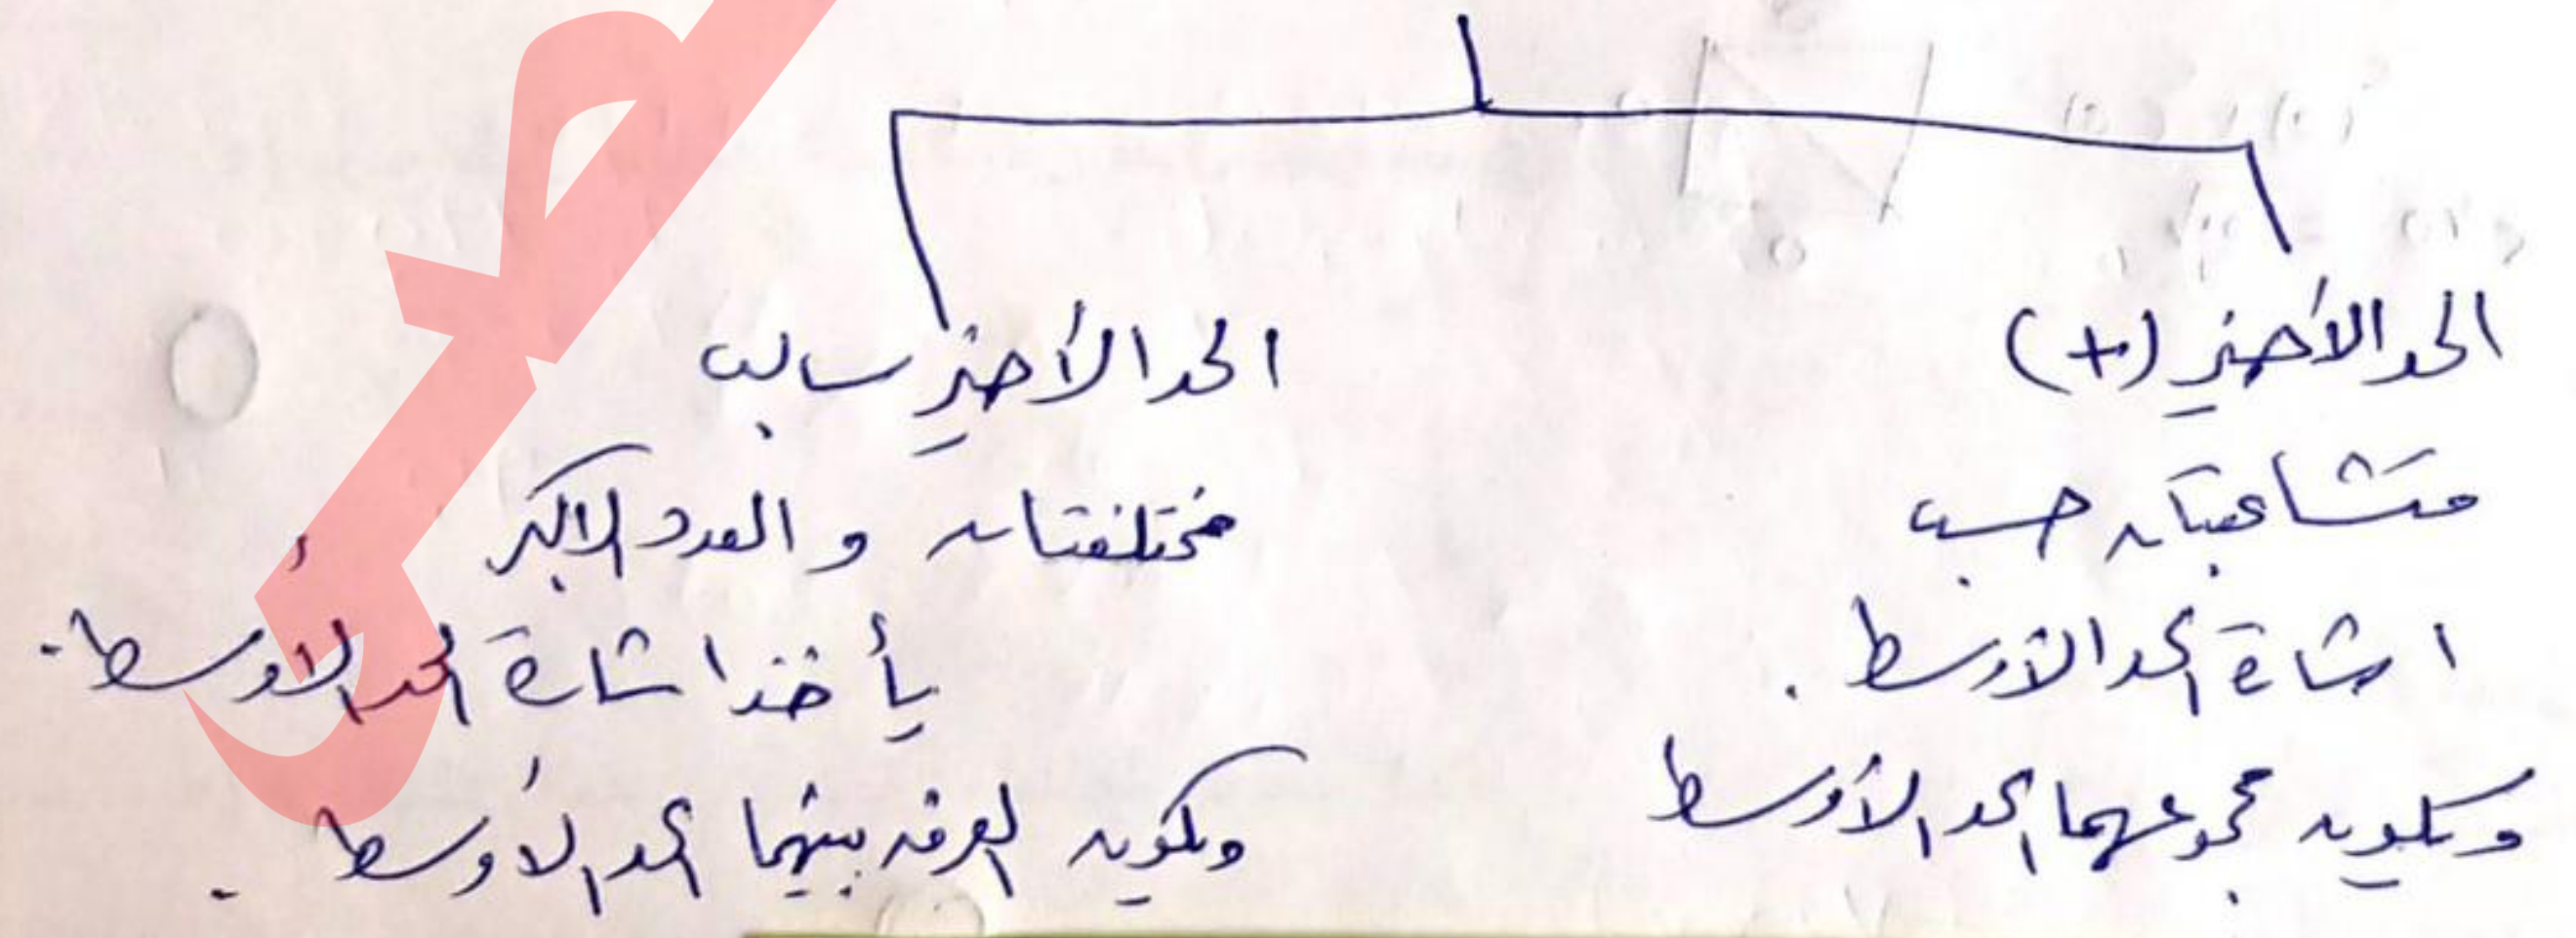 الحد الأخير (+)
متشابهتان حسب
اشارة الحد الأوسط .
ويكون مجموعهما الحد الأوسط
الحد الأخير سالب
مختلفتان والعدد الأكبر
يأخذ اشارة الحد الأوسط .
ويكون الفرق بينهما الحد الأوسط .